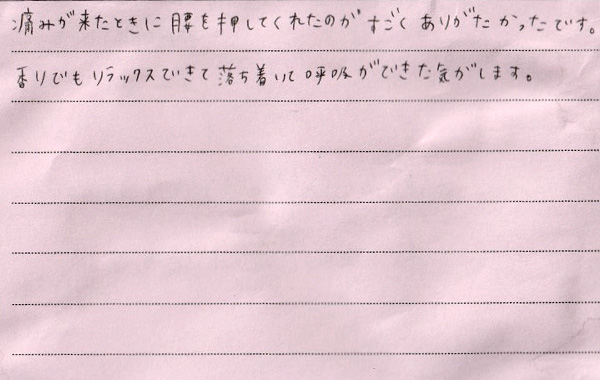 痛みが来たときに腰を押してくれたのがすごくありがたかったです。
香りでもリラックスできて落ち着いて呼吸ができた気がします。